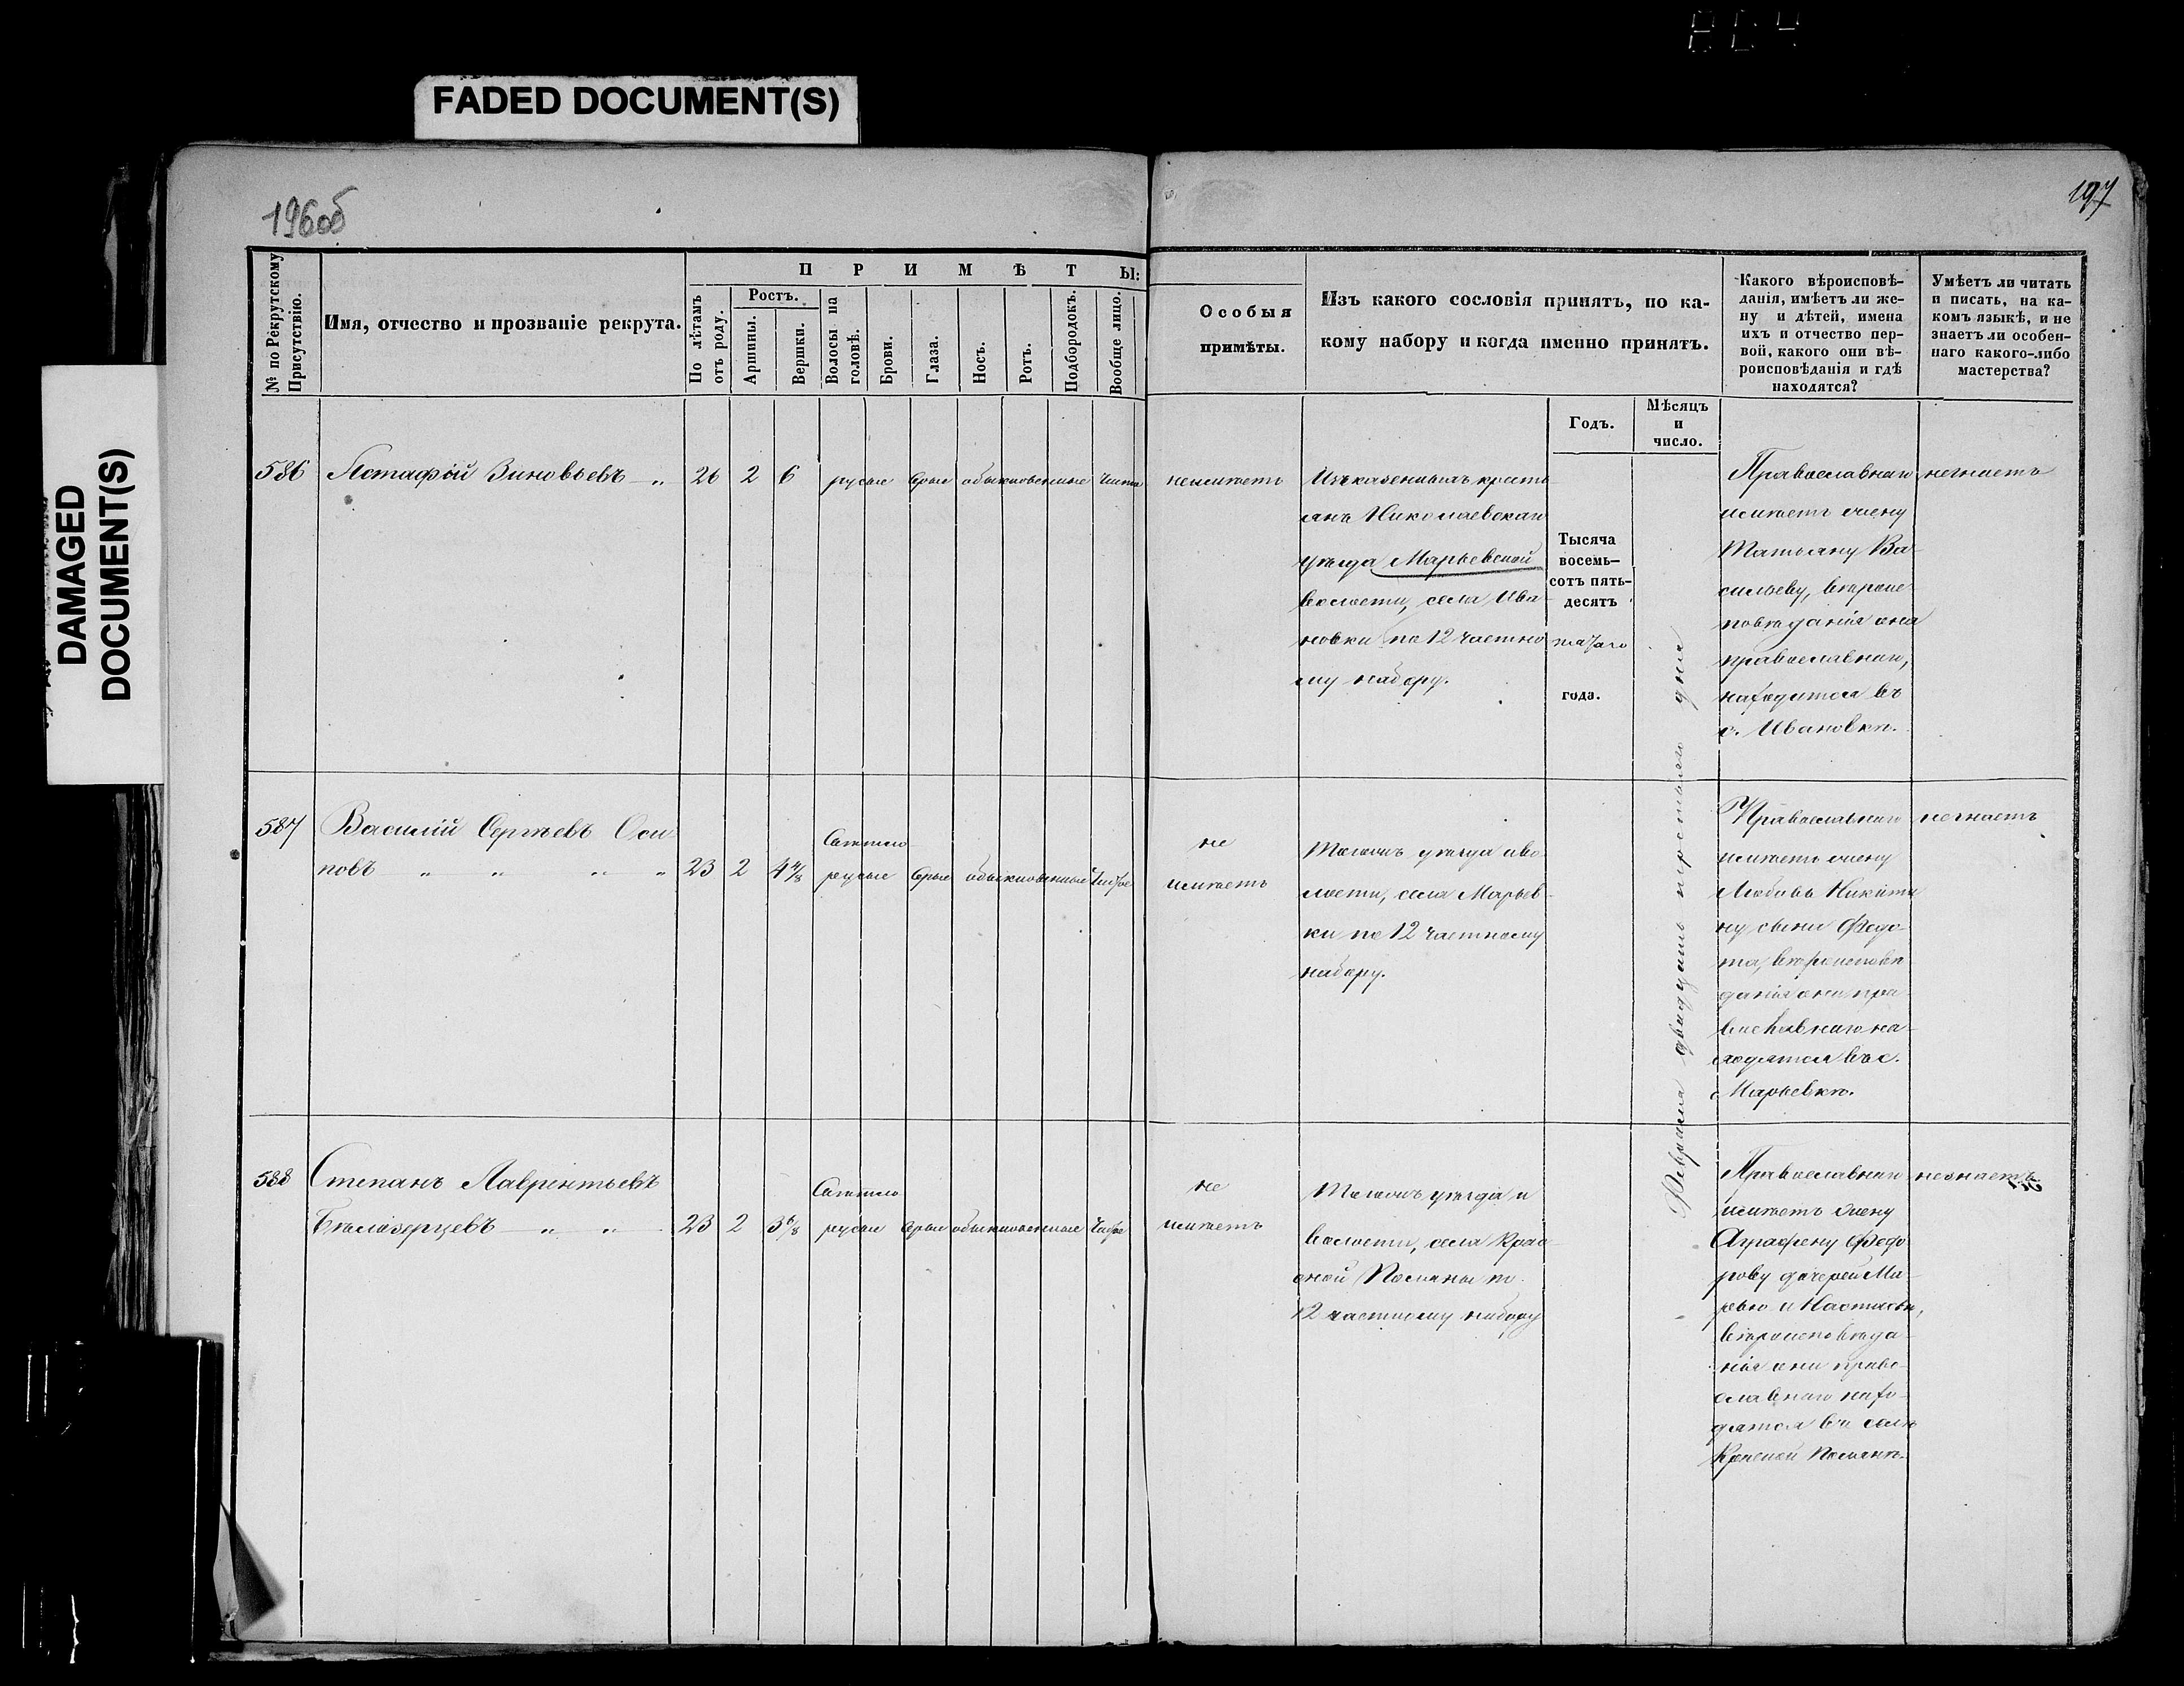 FADED DOCUMENT(S)
DAMAGED
DOCUMENT(S)
196об
197
№ по Рекрутскому
Присутствію.
Имя, отчество и прозваніе рекрута.
П Р И М Ѣ Т Ы:
По лѣтамъ
отъ роду.
Ростъ.
Аршины.
Вершки.
Волосы на
головѣ.
Брови.
Глаза.
Носъ.
Ротъ.
Подбородокъ.
Вообще лицо.
Особыя
примѣты.
Изъ какого сословія принятъ, по ка-
кому набору и когда именно принятъ.
Какого вѣроисповѣ-
данія, имѣетъ ли же-
ну и дѣтей, имена
ихъ и отчество пер-
вой, какого они вѣ-
роисповѣданія и гдѣ
находятся?
Умѣетъ ли читать
и писать, на ка-
комъ языкѣ, и не
знаетъ ли особен-
наго какого-либо
мастерства?
Годъ.
Мѣсяцъ
и
число.
586 Астафій Зиновьевъ 26 2 6 русые сѣрые обыкновенные чисто
неимѣетъ
Изъ казенныхъ кресть
янъ Николаевскаго
уѣзда Марьевской
волости, села Ива
новки по 12 частно
му набору.
Тысяча
восемь-
сотъ пять-
десятъ
года.
Февраля двадцать третьяго дня
Православнаго
имѣетъ жену
Татьяну Ва-
сильеву, вѣроис
повѣданія она
православнаго,
находится въ
с. Ивановкѣ.
незнаетъ
587 Василій Сергѣевъ Оси
повъ 23 2 4 4/8
Свѣтло
русые сѣрые обыкновенные чистое
не
имѣетъ
Тогожъ уѣзда и во
лости, села Марьев-
ки по 12 частному
набору.
Православнаго
имѣетъ жену
Любовь Никити
ну сына Федо-
та, вѣроисповѣ
данія они пра
вославнаго на-
ходятся въ с.
Марьевкѣ.
незнаетъ
588 Степанъ Лаврентьевъ
Бѣлозерцевъ 23 2 3 6/8
Свѣтло
русые сѣрые обыкновенные чистое
не
имѣетъ
Тогожъ уѣзда и
волости, села Крас-
ной Поляны по
12 частному набору
Православнаго
имѣетъ жену
Аграфену Федо
рову дочерей Ма-
рью и Настасью,
вѣроисповѣда-
нія они право-
славнаго нахо-
дятся въ селѣ
Красной Полянѣ.
незнаетъ